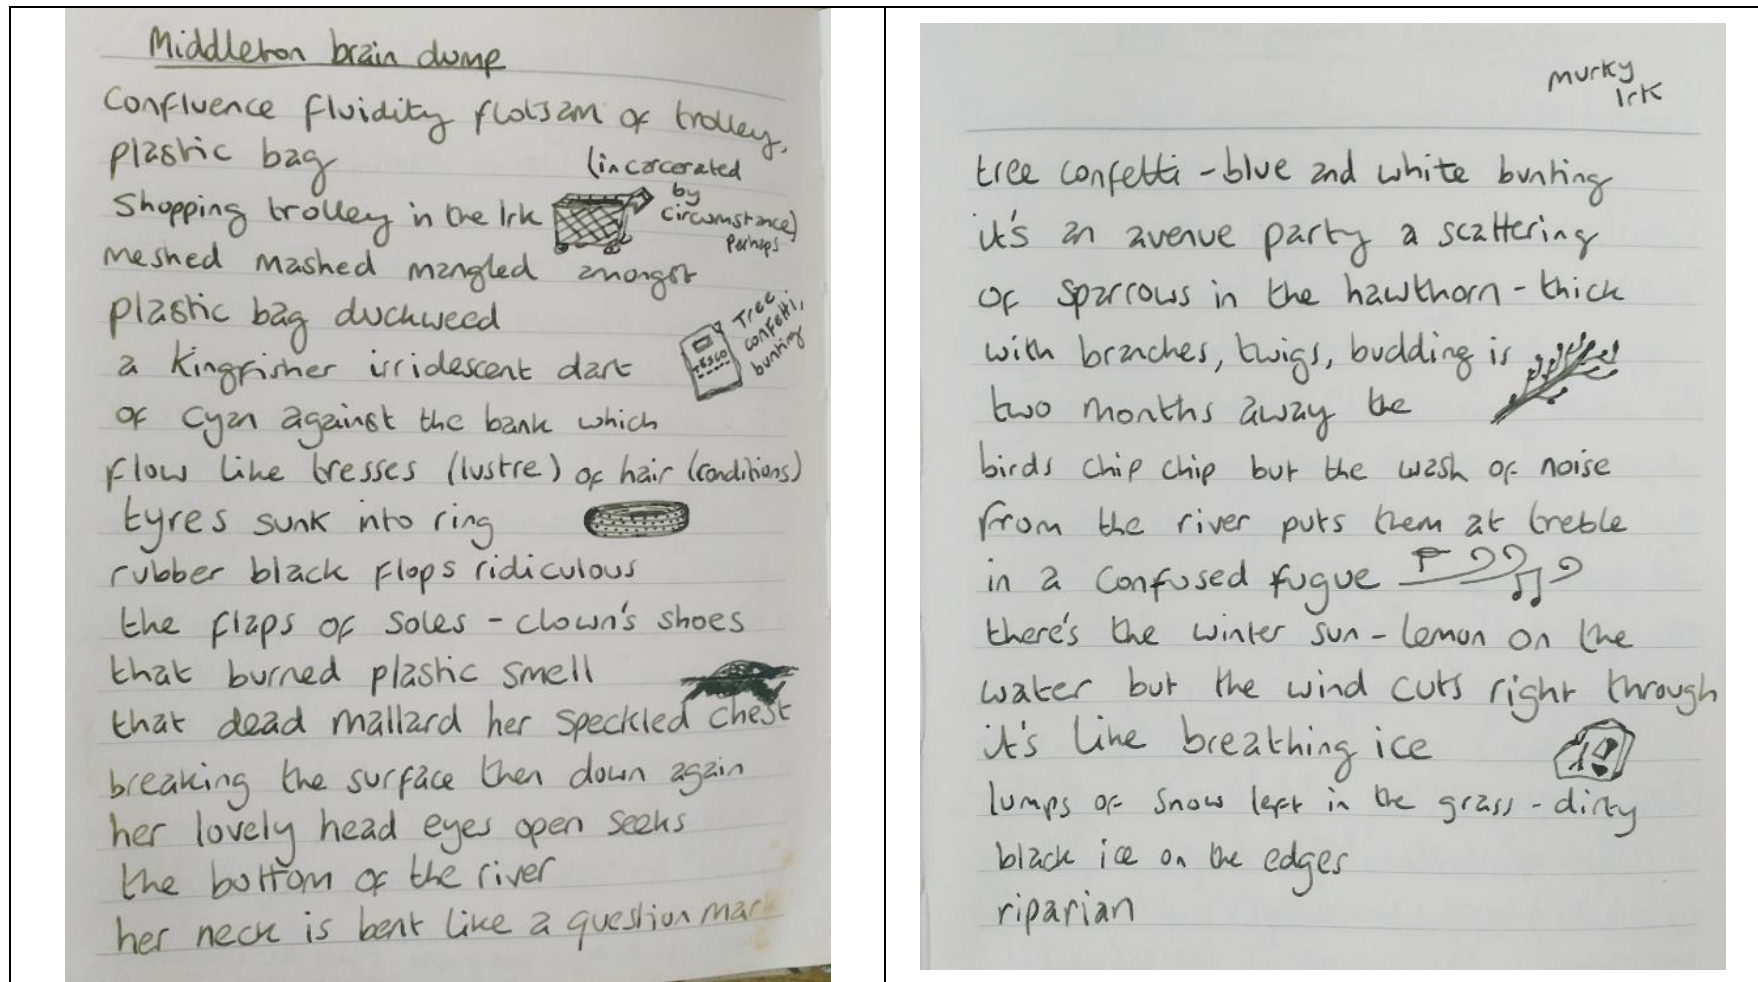 Middleton brain dump
Confluence fluidity flotsam of trolley,
plastic bag
(incarcerated
by
circumstance)
perhaps
Shopping trolley in the Irk
meshed mashed mangled amongst
plastic bag duckweed
Tree
confetti,
bunting
TESCO
a Kingfisher irridescent dart
of cyan against the bank which
flow like tresses (lustre) of hair (conditions)
tyres sunk into ring
rubber black flops ridiculous
the flaps of soles - clown's shoes
that burned plastic smell
that dead mallard her speckled chest
breaking the surface then down again
her lovely head eyes open seeks
the bottom of the river
her neck is bent like a question mark
murky
Irk
tree confetti - blue and white bunting
it's an avenue party a scattering
of sparrows in the hawthorn - thick
with branches, twigs, budding is
two months away the
birds chip chip but the wash of noise
from the river puts them at treble
in a confused fugue
there's the winter sun - lemon on the
water but the wind cuts right through
it's like breathing ice
lumps of snow left in the grass - dirty
black ice on the edges
riparian